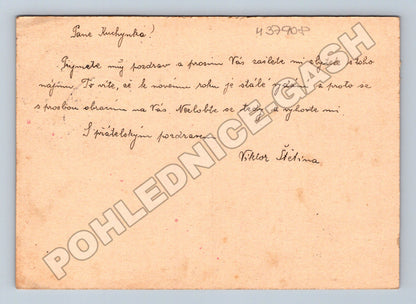 Pane Kuchynka!
43790-P
Přijměte můj pozdrav a prosím Vás zašlete mi z toho
nájmu. To víte, že k novému roku je stálé a proto se
s prosbou obracím na Vás. Nezlobte se a vyhovte mi
S přátelským pozdravem
Viktor Štětina
POHLEDNICE-GASH